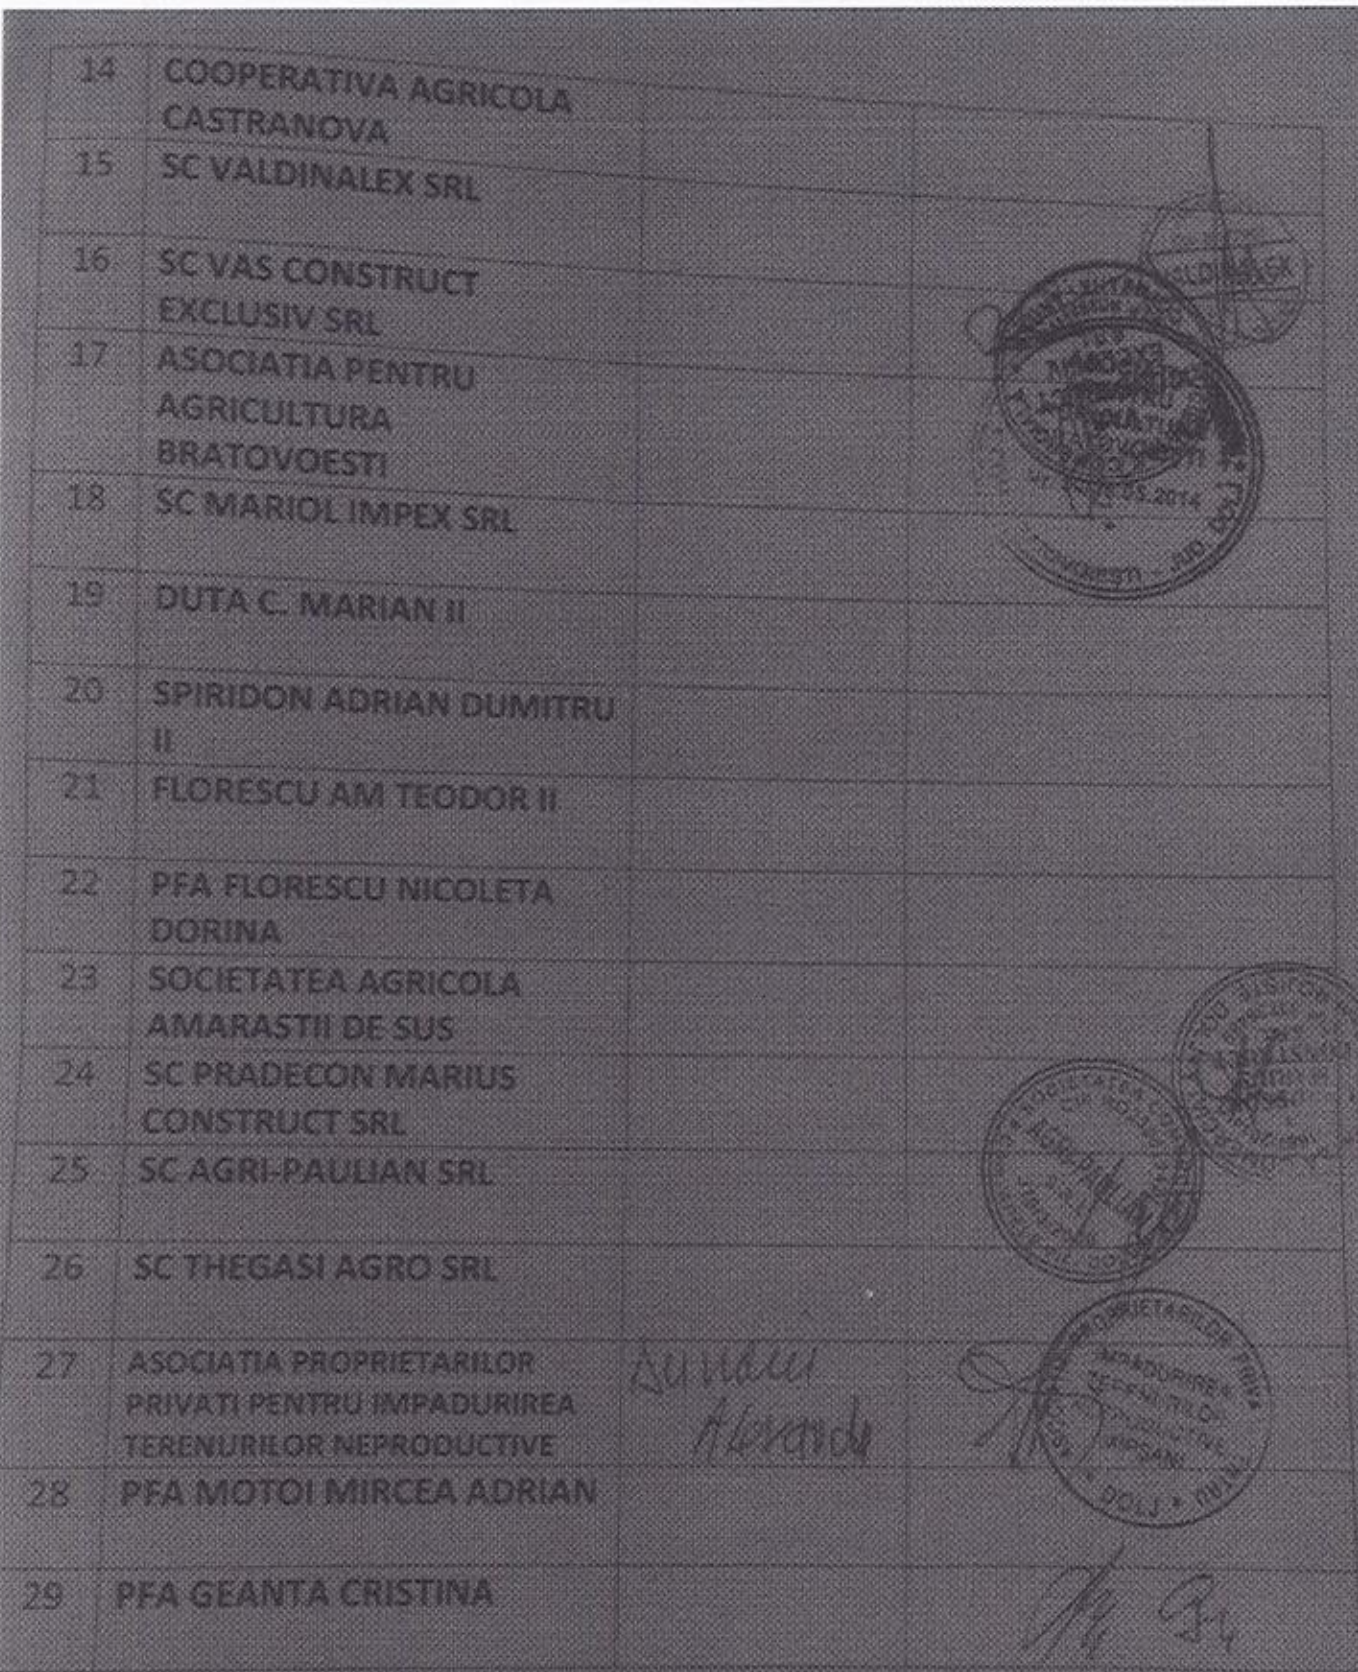 14 COOPERATIVA AGRICOLA
CASTRANOVA
15 SC VALDINALEX SRL
16 SC VAS CONSTRUCT
EXCLUSIV SRL
17 ASOCIATIA PENTRU
AGRICULTURA
BRATOVOESTI
18 SC MARIOL IMPEX SRL
05.2014
19 DUTA C. MARIAN II
20 SPIRIDON ADRIAN DUMITRU
II
21 FLORESCU AM TEODOR II
22 PFA FLORESCU NICOLETA
DORINA
23 SOCIETATEA AGRICOLA
AMARASTII DE SUS
24 SC PRADECON MARIUS
CONSTRUCT SRL
SOCIETATEA
25 SC AGRI-PAULIAN SRL
26 SC THEGASI AGRO SRL
27 ASOCIATIA PROPRIETARILOR
PRIVATI PENTRU IMPADURIREA
TERENURILOR NEPRODUCTIVE
PROPRIETARILOR
DOLJ
28 PFA MOTOI MIRCEA ADRIAN
29 PFA GEANTA CRISTINA